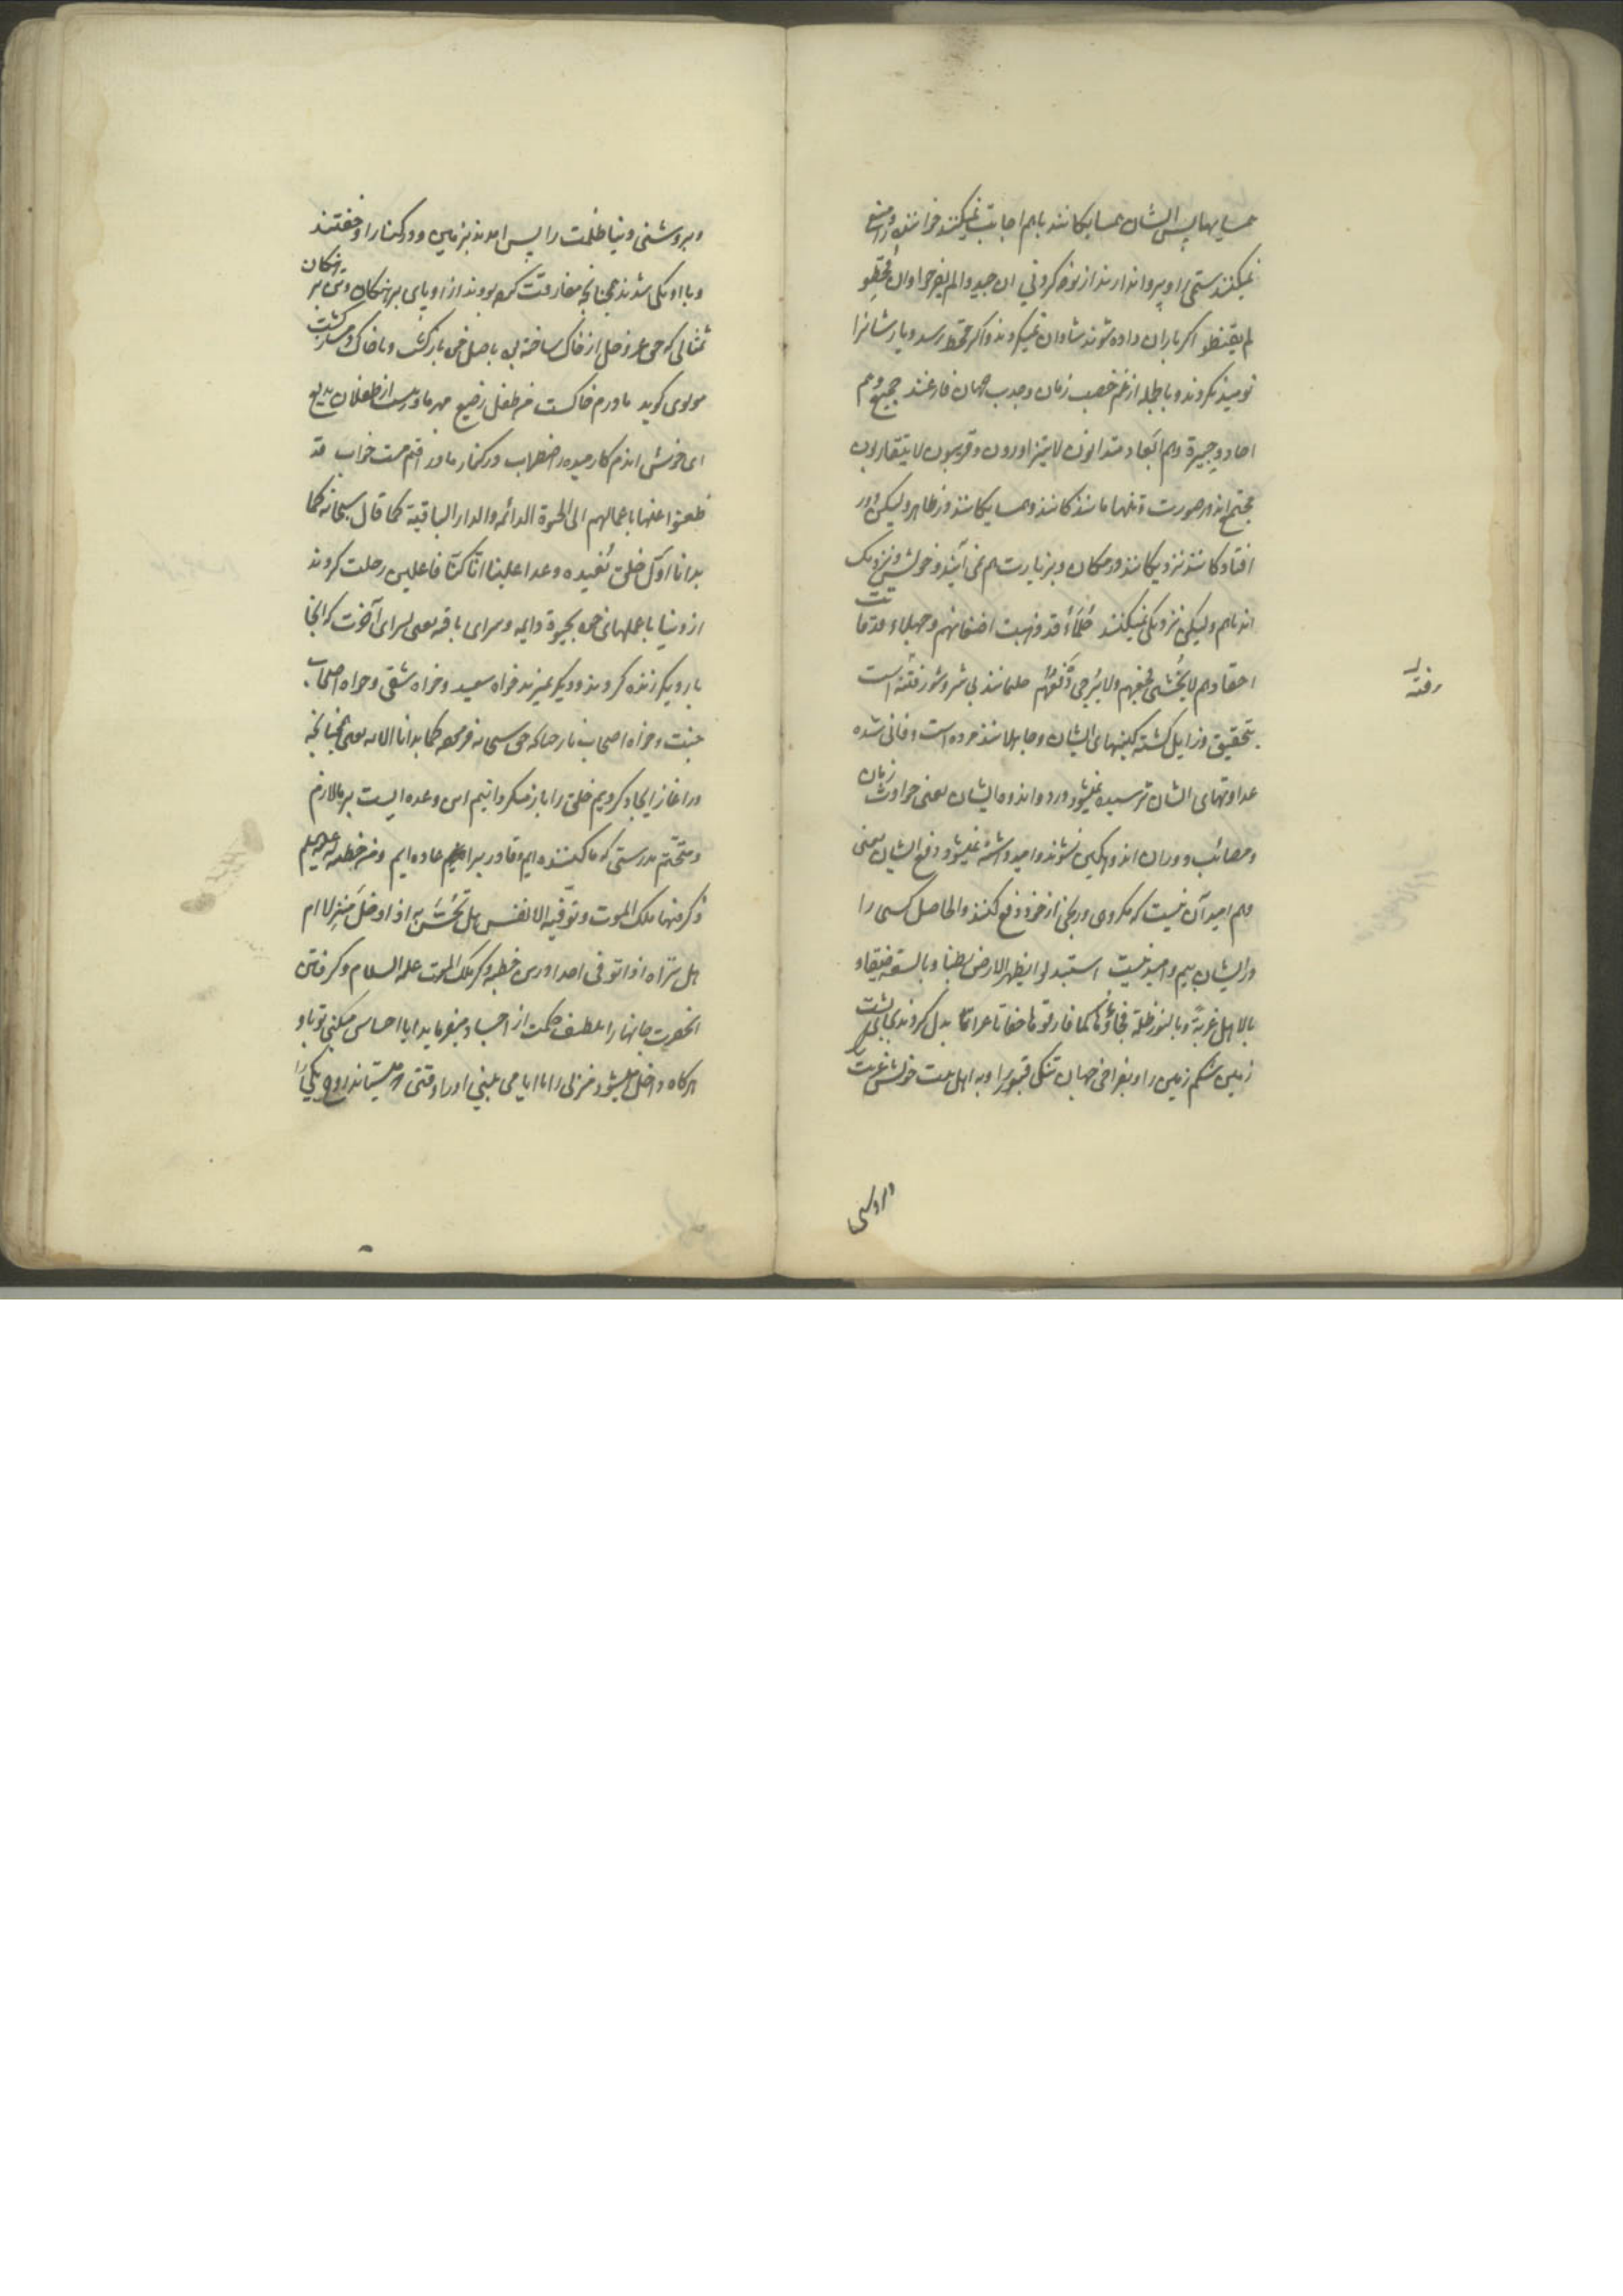 همسایها پس ایشان همسایگانند باهم اجابت نمیکنند خواننده و منع
نمیکنند ستمی را و پروا ندارند از نوحه کردنی ان جیدوا لم یفرحوا وان قحطو
لم یقنطو اکر باران داده شوند شادان نمیکردند و اکر قحط رسد دیار شانرا
نومید نکردند و بالجمله از غم خصب زمان و جدب جهان فارغند جمیع وهم
احاد و جیرة وهم ابعاد متدانون لا یتزاورون و قریبون لا یتقاربون
مجتمع اند بر صورت و تنهاماندکانند و همسایکانند در ظاهر ولیکن دور
افتادکانند نزدیکانند در مکان و بزیارت هم نمی آیند و خویش و نزدیک
اند باهم ولیکن نزدیکی نمیکنند حلماء قد ذهبت اضغانهم و جهلاء قد ماتت
احقادهم لا یخشی فجعهم ولا یرجی دفعهم حلمانند بی شر و شور رفته است
بتحقیق و زایل کشته کینهای ایشان و جاهلانند مرده است و فانی شده
عداوتهای ایشان ترسیده نمیشود درد و اندوه ایشان یعنی حوادث زمان
و مصائب دوران اندوهکین نشوند و امید داشته نمیشود دفع ایشان یعنی
وهم امید آن نیست که مکروهی و رنجی از خود دفع کنند والحاصل کسی را
در ایشان بیم و امید نیست استبدلوا بظهر الارض بطنا وبالسعة ضیقا و
بالاهل غربة وبالنور ظلمة فجاؤها کما فارقوها حفاتا عراتا بدل کردند بجای پشت
زمین شکم زمین را و بفراخی جهان تنکی قبور را و به اهل بیت خویش غربت را
رفته
و بروشنی دنیا ظلمت را پس امدند بزمین و در کنار او خفتند
و با او یکی شدند همچنانچه مفارقت کرده بودند از او پای برهنکان و تن برهنکان
تمثالی که حق عز و جل از خاک ساخته بود باصل خود بازکشت و با خاک یکسان کشت
مولوی کوید مادرم خاکست من طفل رضیع مهر مادر نیست از طفلان بدیع
ای خوش اندم کارمیده ز اضطراب در کنار مادر افتم مست خراب قد
ظعنوا عنها باعمالهم الی الحیوة الدائمه والدار الباقیة کما قال سبحانه کما
بدانا اول خلق نعیده وعدا علینا انا کنا فاعلین رحلت کردند
از دنیا با عملهای خود بحیوة دایمه و سرای باقیه یعنی بسرای آخرت که انجا
بار دیکر زنده کردند و دیکر نمیرند خواه سعید و خواه شقی و خواه اصحاب
جنت و خواه اصحاب نار چنانکه حق سبحانه فرموده کما بدانا الایه یعنی همچنانچه
در اغاز ایجاد کردیم خلق را باز میکردانیم این وعده ایست بر ما لازم
و متحتم بدرستی که ما کننده ایم و قادر بر اعاده ایم ومن خطبه له علیه السلم
ذکر فیها ملک الموت و توفیه الانفس هل تحس به اذا دخل منزلا ام
هل تراه اذا توفی احدا در این خطبه ذکر ملک الموت علیه السلام و کرفتن
انحضرت جانها را بلطف حکمت از اجساد میفرماید ایا احساس میکنی تو باو
هرکاه داخل میشود منزلی را یا ایا می بینی او را وقتی که میستاند روح یکی را